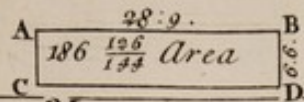 28:9.
A B
186 126/144 Area
6.6.
C D